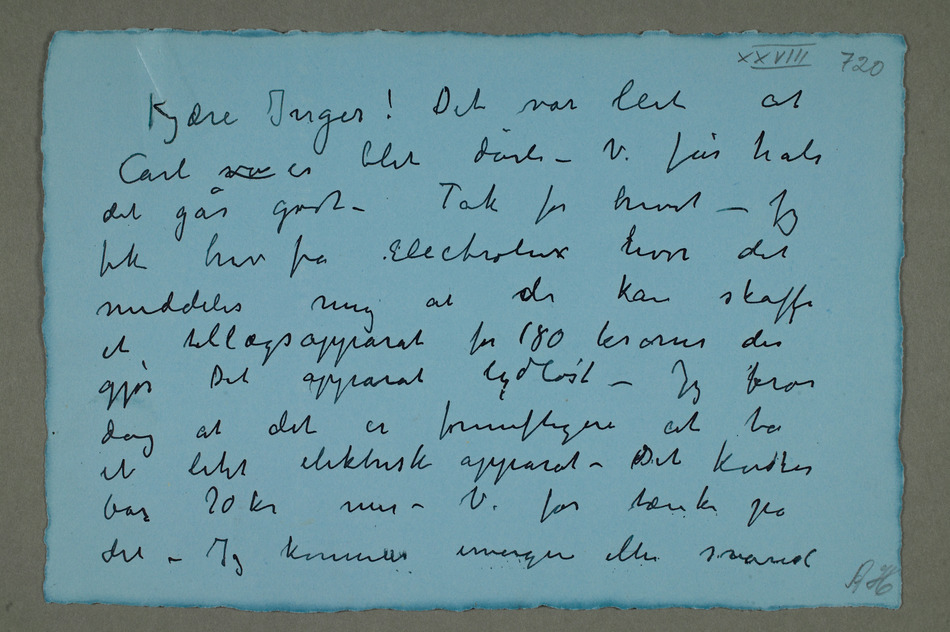 XXVIII 720
Kjære Inger! Det var leit at
Carl er blet dårli – V. får håbe
det går godt – Tak for brevet – Jeg
fik brev fra Electrolux hvor det
meddeles mig at de kan skaffe
et tillægsapparat for 180 kroner der
gjør Det apparat lydløst – Jeg tror
dog at det er fornuftigere at ta
et litet elektrisk apparat – Det koster
bare 20 kr mer – V. får tænke på
det – Jeg kommer imorgen eller